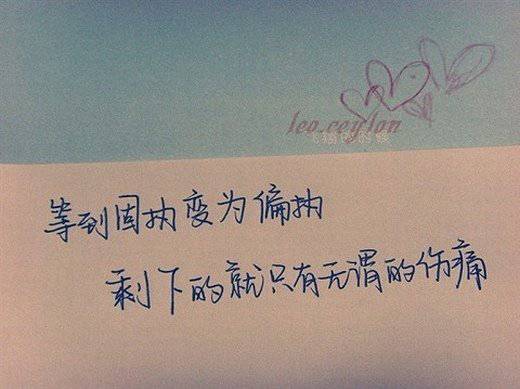 leo.ceylon
等到固执变为偏执
剩下的就只有无谓的伤痛